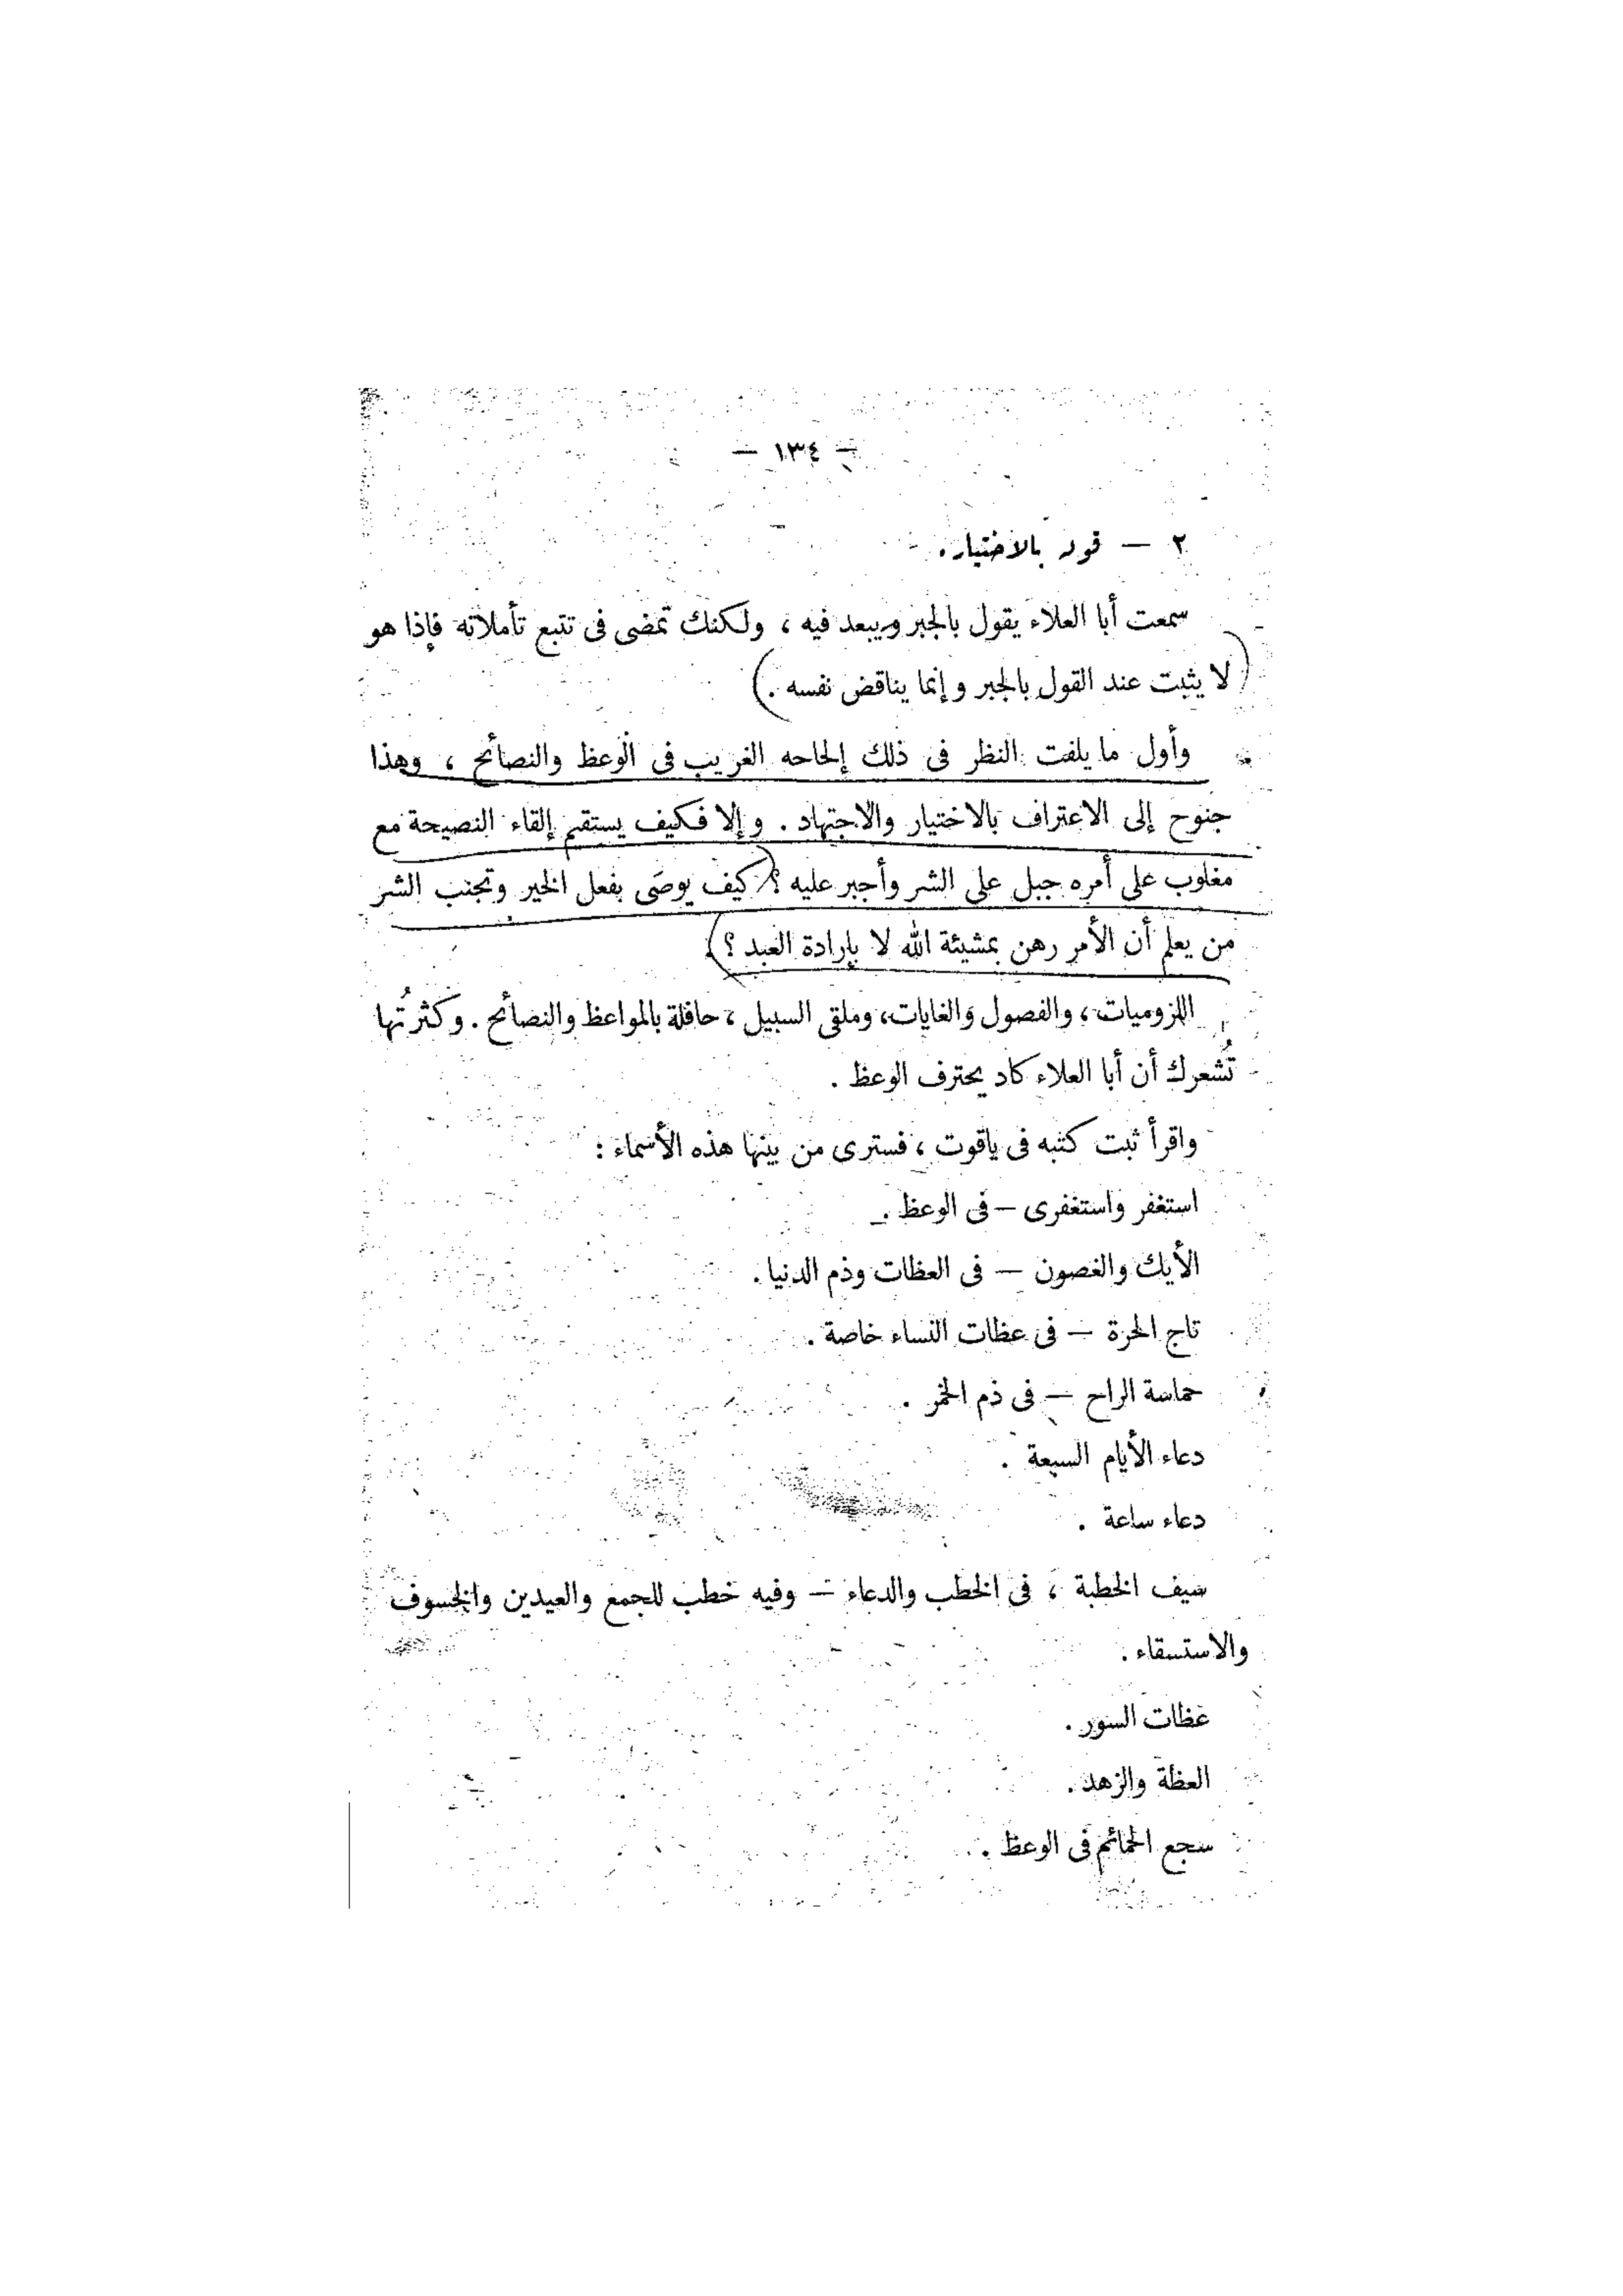 — ١٣٤ —
٢ — قوله بالاختيار.
سمعت أبا العلاء يقول بالجبر ويبعد فيه ، ولكنك تمضى فى تتبع تأملاته فإذا هو
لا يثبت عند القول بالجبر وإنما يناقض نفسه .
وأول ما يلفت النظر فى ذلك إلحاحه الغريب فى الوعظ والنصائح ، وهذا
جنوح إلى الاعتراف بالاختيار والاجتهاد . وإلا فكيف يستقيم إلقاء النصيحة مع
مغلوب على أمره جبل على الشر وأجبر عليه ؟ كيف يوصَى بفعل الخير وتجنب الشر
من يعلم أن الأمر رهن بمشيئة الله لا بإرادة العبد ؟
اللزوميات ، والفصول والغايات، وملقى السبيل ، حافلة بالمواعظ والنصائح . وكثرتُها
تُشعرك أن أبا العلاء كاد يحترف الوعظ .
واقرأ ثبت كتبه فى ياقوت ، فسترى من بينها هذه الأسماء :
استغفر واستغفرى — فى الوعظ .
الأيك والغصون — فى العظات وذم الدنيا .
تاج الحرة — فى عظات النساء خاصة .
حماسة الراح — فى ذم الخمر .
دعاء الأيام السبعة .
دعاء ساعة .
سيف الخطبة ، فى الخطب والدعاء — وفيه خطب للجمع والعيدين والخسوف
والاستسقاء .
عظات السور .
العظة والزهد .
سجع الحمائم فى الوعظ .